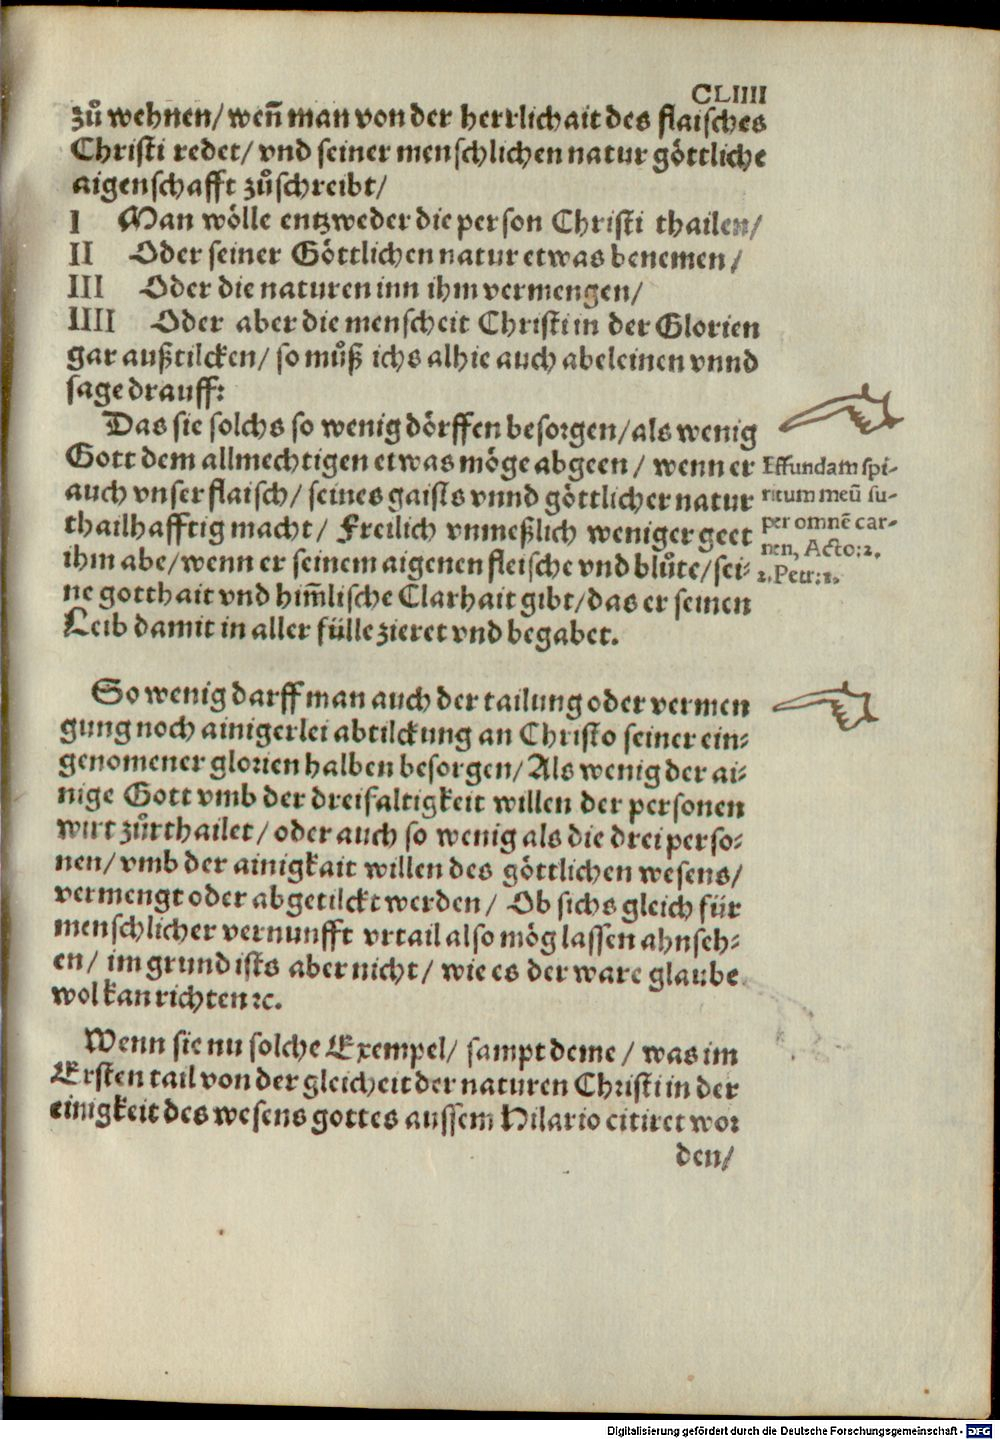 CLIIII
zů wehnen/ weñ man von der herrlichait des flaisches
Christi redet/ vnd seiner menschlichen natur göttliche
aigenschafft zůschreibt/
I Man wölle entzweder die person Christi thailen/
II Oder seiner Göttlichen natur etwas benemen/
III Oder die naturen inn ihm vermengen/
IIII Oder aber die menscheit Christi in der Glorien
gar außtilcken/ so můß ichs alhie auch abeleinen vnnd
sage drauff:
Das sie solchs so wenig dörffen besorgen/ als wenig
Gott dem allmechtigen etwas möge abgeen/ wenn er
auch vnser flaisch/ seines gaists vnnd göttlicher natur
thailhafftig macht/ Freilich vnmeßlich weniger geet
ihm abe/ wenn er seinem aigenen fleische vnd blůte/ sei-
ne gotthait vnd him̃lische Clarhait gibt/ das er seinen
Leib damit in aller fülle zieret vnd begabet.
Effundam spi-
ritum meũ su-
per omnẽ car-
nen, Acto:2.
2.Petr:1.
So wenig darff man auch der tailung oder vermen
gung noch ainigerlei abtilckung an Christo seiner ein-
genomener glorien halben besorgen/ Als wenig der ai-
nige Gott vmb der dreifaltigkeit willen der personen
wirt zůrthailet/ oder auch so wenig als die drei perso-
nen/ vmb der ainigkait willen des göttlichen wesens/
vermengt oder abgetilckt werden/ Ob sichs gleich für
menschlicher vernunfft vrtail also mög lassen ahnseh-
en/ im grund ists aber nicht/ wie es der ware glaube
wol kan richten ꝛc.
Wenn sie nu solche Exempel/ sampt deme/ was im
Ersten tail von der gleicheit der naturen Christi in der
einigkeit des wesens gottes aussem Hilario citiret wor
den/
Digitalisierung gefördert durch die Deutsche Forschungsgemeinschaft - DFG